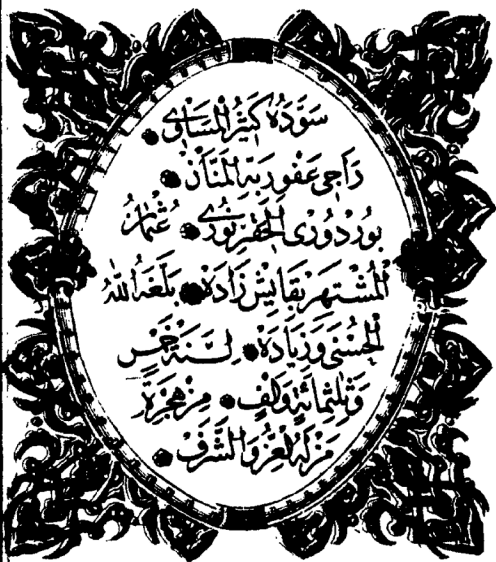 سَوَّدَهُ كَثِيرُ الْمَسَاوِي
رَاجِي عَفْوِ رَبِّهِ الْمَنَّانْ
بُورْدُورِى الْحَقِيرْ نُورِى عُثْمَانُ
الْمُشْتَهِرْ بِقَايِشْ زَادَهْ بَلَّغَهُ اللهُ
الْحُسْنٰى وَزِيَادَهْ لِسَنَةِ خَمْسٍ
وَثَلٰثِمِائَةٍ وَاَلْفٍ مِنْ هِجْرَةِ
مَنْ لَهُ الْعِزُّ وَالشَّرَفْ